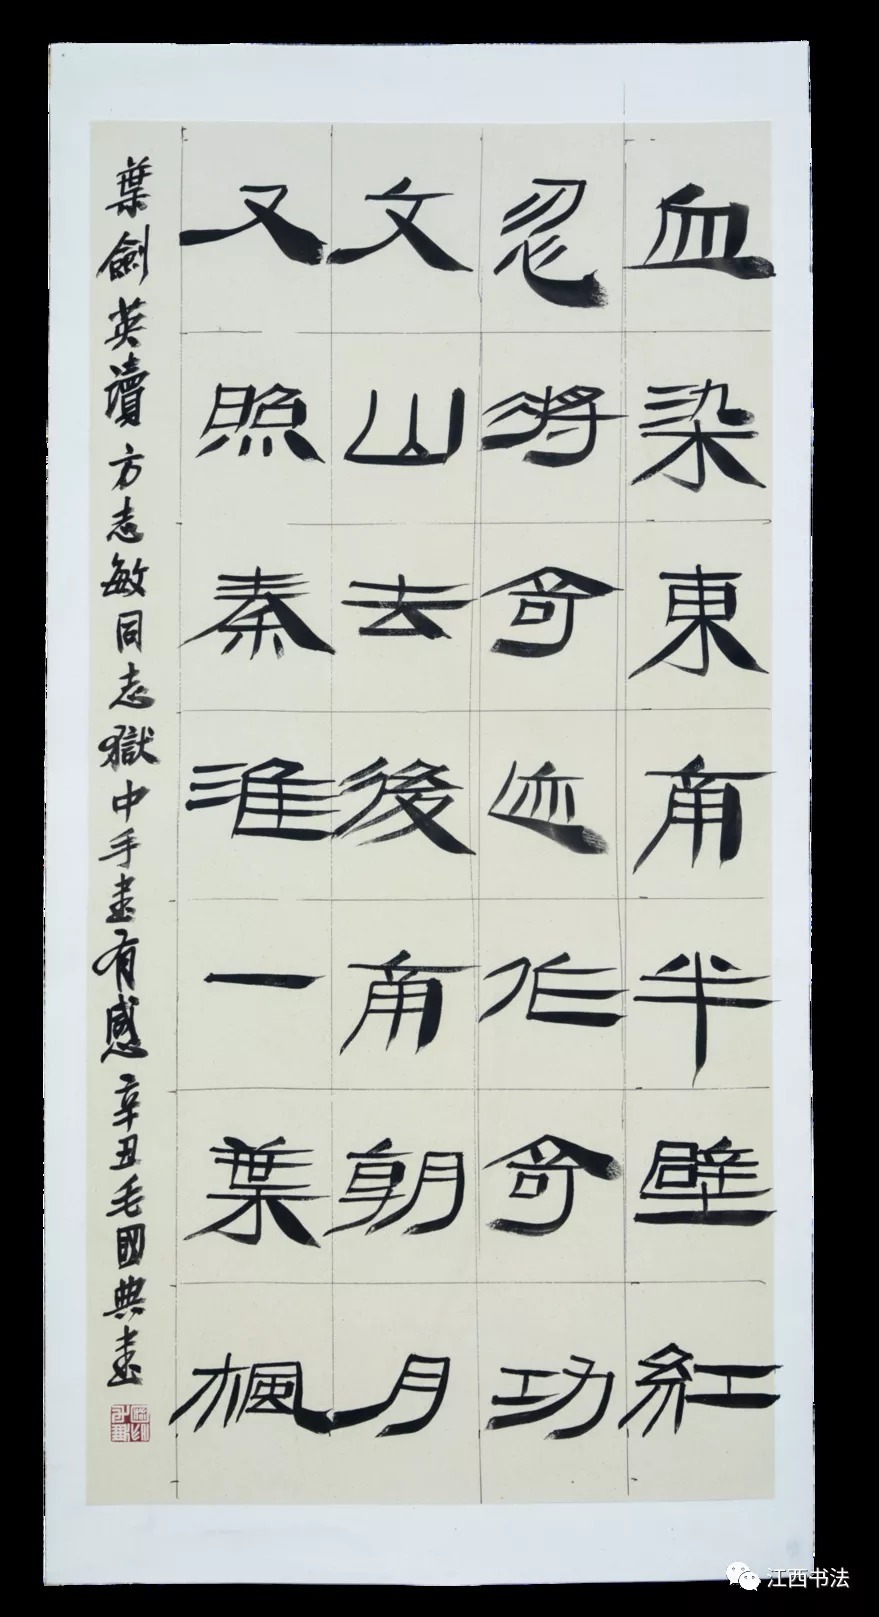 血染東南半壁紅
忍將奇迹作奇功
文山去後南朝月
又照秦淮一葉楓
葉劍英讀方志敏同志獄中手書有感 辛丑毛國典書
江西书法